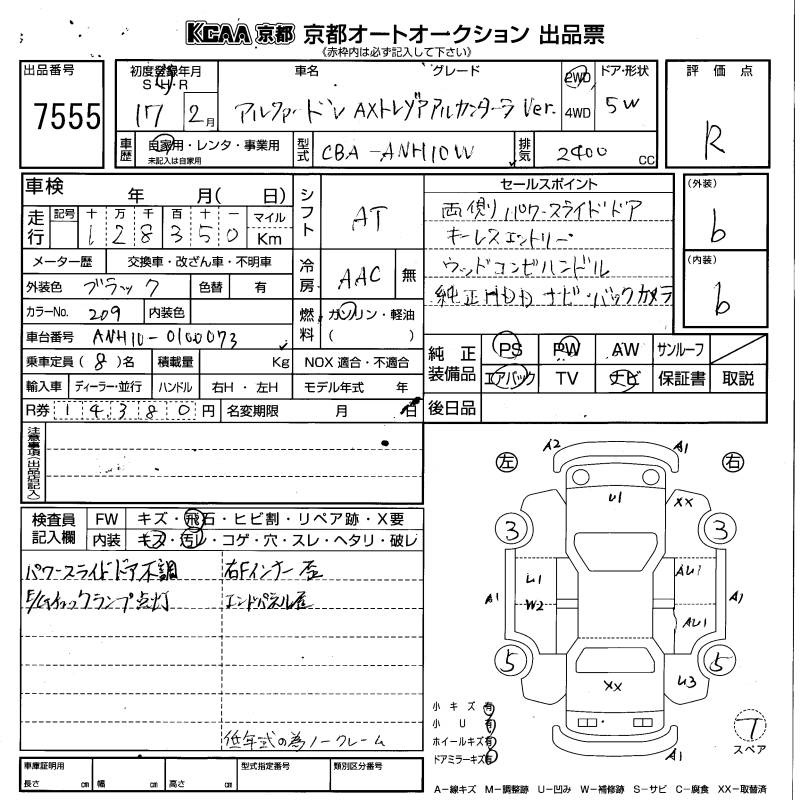 KCAA 京都 京都オートオークション 出品票
《赤枠内は必ず記入して下さい》
出品番号
7555
初度登録年月
S・H・R
17 2月
車名 グレード
アルファード V AXトレゾアアルカンターラ Ver.
2WD
4WD
ドア・形状
5W
評価点
R
車歴
自家用・レンタ・事業用
未記入は自家用
型式
CBA-ANH10W
排気
2400 CC
車検 年 月( 日)
走行
記号 十 万 千 百 十 一 マイル
1 2 8 3 5 0 Km
メーター歴 交換車・改ざん車・不明車
外装色 ブラック 色替 有
カラーNo. 209 内装色
車台番号 ANH10-0100073
乗車定員 (8)名 積載量 Kg
輸入車 ディーラー・並行 ハンドル 右H・左H
R券 14380円 名変期限 月 日
シフト AT
冷房 AAC 無
燃料 ガソリン・軽油
( )
NOX 適合・不適合
モデル年式 年
セールスポイント
両側パワースライドドア
キーレスエントリー
ウッドコンビハンドル
純正HDDナビ・バックカメラ
(外装)
b
(内装)
b
純正装備品
PS PW AW サンルーフ
エアバック TV ナビ 保証書 取説
後日品
注意事項(出品店記入)
検査員記入欄
FW キズ・飛石・ヒビ割・リペア跡・X要
内装 キズ・汚レ・コゲ・穴・スレ・ヘタリ・破レ
パワースライドドア不調
E/Gチェックランプ点灯
右Fインナー歪
エンドパネル歪
低年式の為ノークレーム
左 右
A2 A1
U1 XX
3 3
U1 AU1
A1 W2 A1
AU1
5 5
XX U3
A1
小キズ 有
小U 有
ホイールキズ 有
ドアミラーキズ 有
T
スペア
車庫証明用
長さ cm 幅 cm 高さ cm
型式指定番号 類別区分番号
A-線キズ M-調整跡 U-凹み W-補修跡 S-サビ C-腐食 XX-取替済